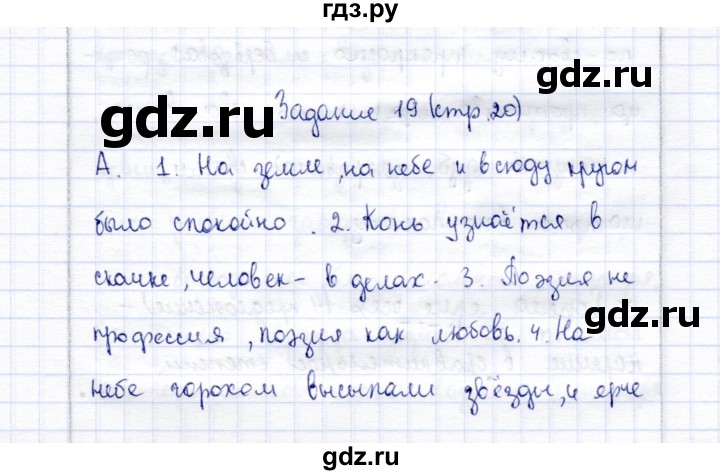 гдз.ру
gdz.ru
gdz.ru
Задание 19 (стр. 20)
А. 1. На земле, на небе и всюду кругом
было спокойно. 2. Конь узнаётся в
скачке, человек – в делах. 3. Поэзия не
профессия, поэзия как любовь. 4. На
небе горохом высыпали звёзды, и ярче
gdz.ru
gdz.ru
gdz.ru